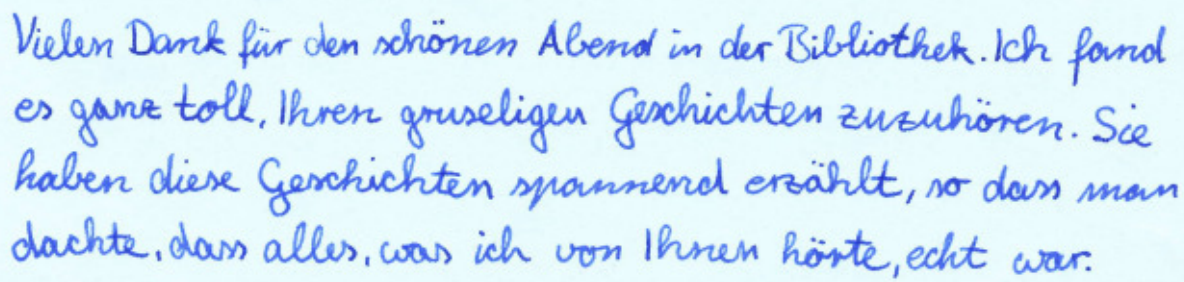 Vielen Dank für den schönen Abend in der Bibliothek. Ich fand
es ganz toll, Ihren gruseligen Geschichten zuzuhören. Sie
haben diese Geschichten spannend erzählt, so dass man
dachte, dass alles, was ich von Ihnen hörte, echt war.